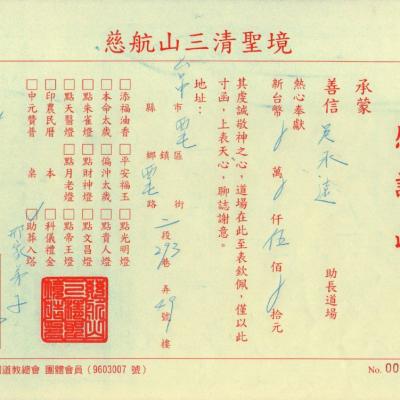 慈航山三清聖境
承蒙
善信 吳永達 助長道場
熱心奉獻
新台幣 萬 仟伍佰 拾元
其度誠敬神之心，道場在此至表欽佩，僅以此
寸函，上表天心，聊誌謝意。
地址：
縣市 鄉鎮區 路街二段293巷 弄49號 樓
□添福油香 □平安福玉 □點光明燈
□本命太歲 □偏沖太歲 □點貴人燈
□點朱雀燈 □點財神燈 □點文昌燈
□點天醫燈 □點月老燈 □點帝王燈
□印農民曆 本 □科儀禮金
□中元贊普 桌 □助葬入塔
道教總會 團體會員（9603007 號）
No. 00